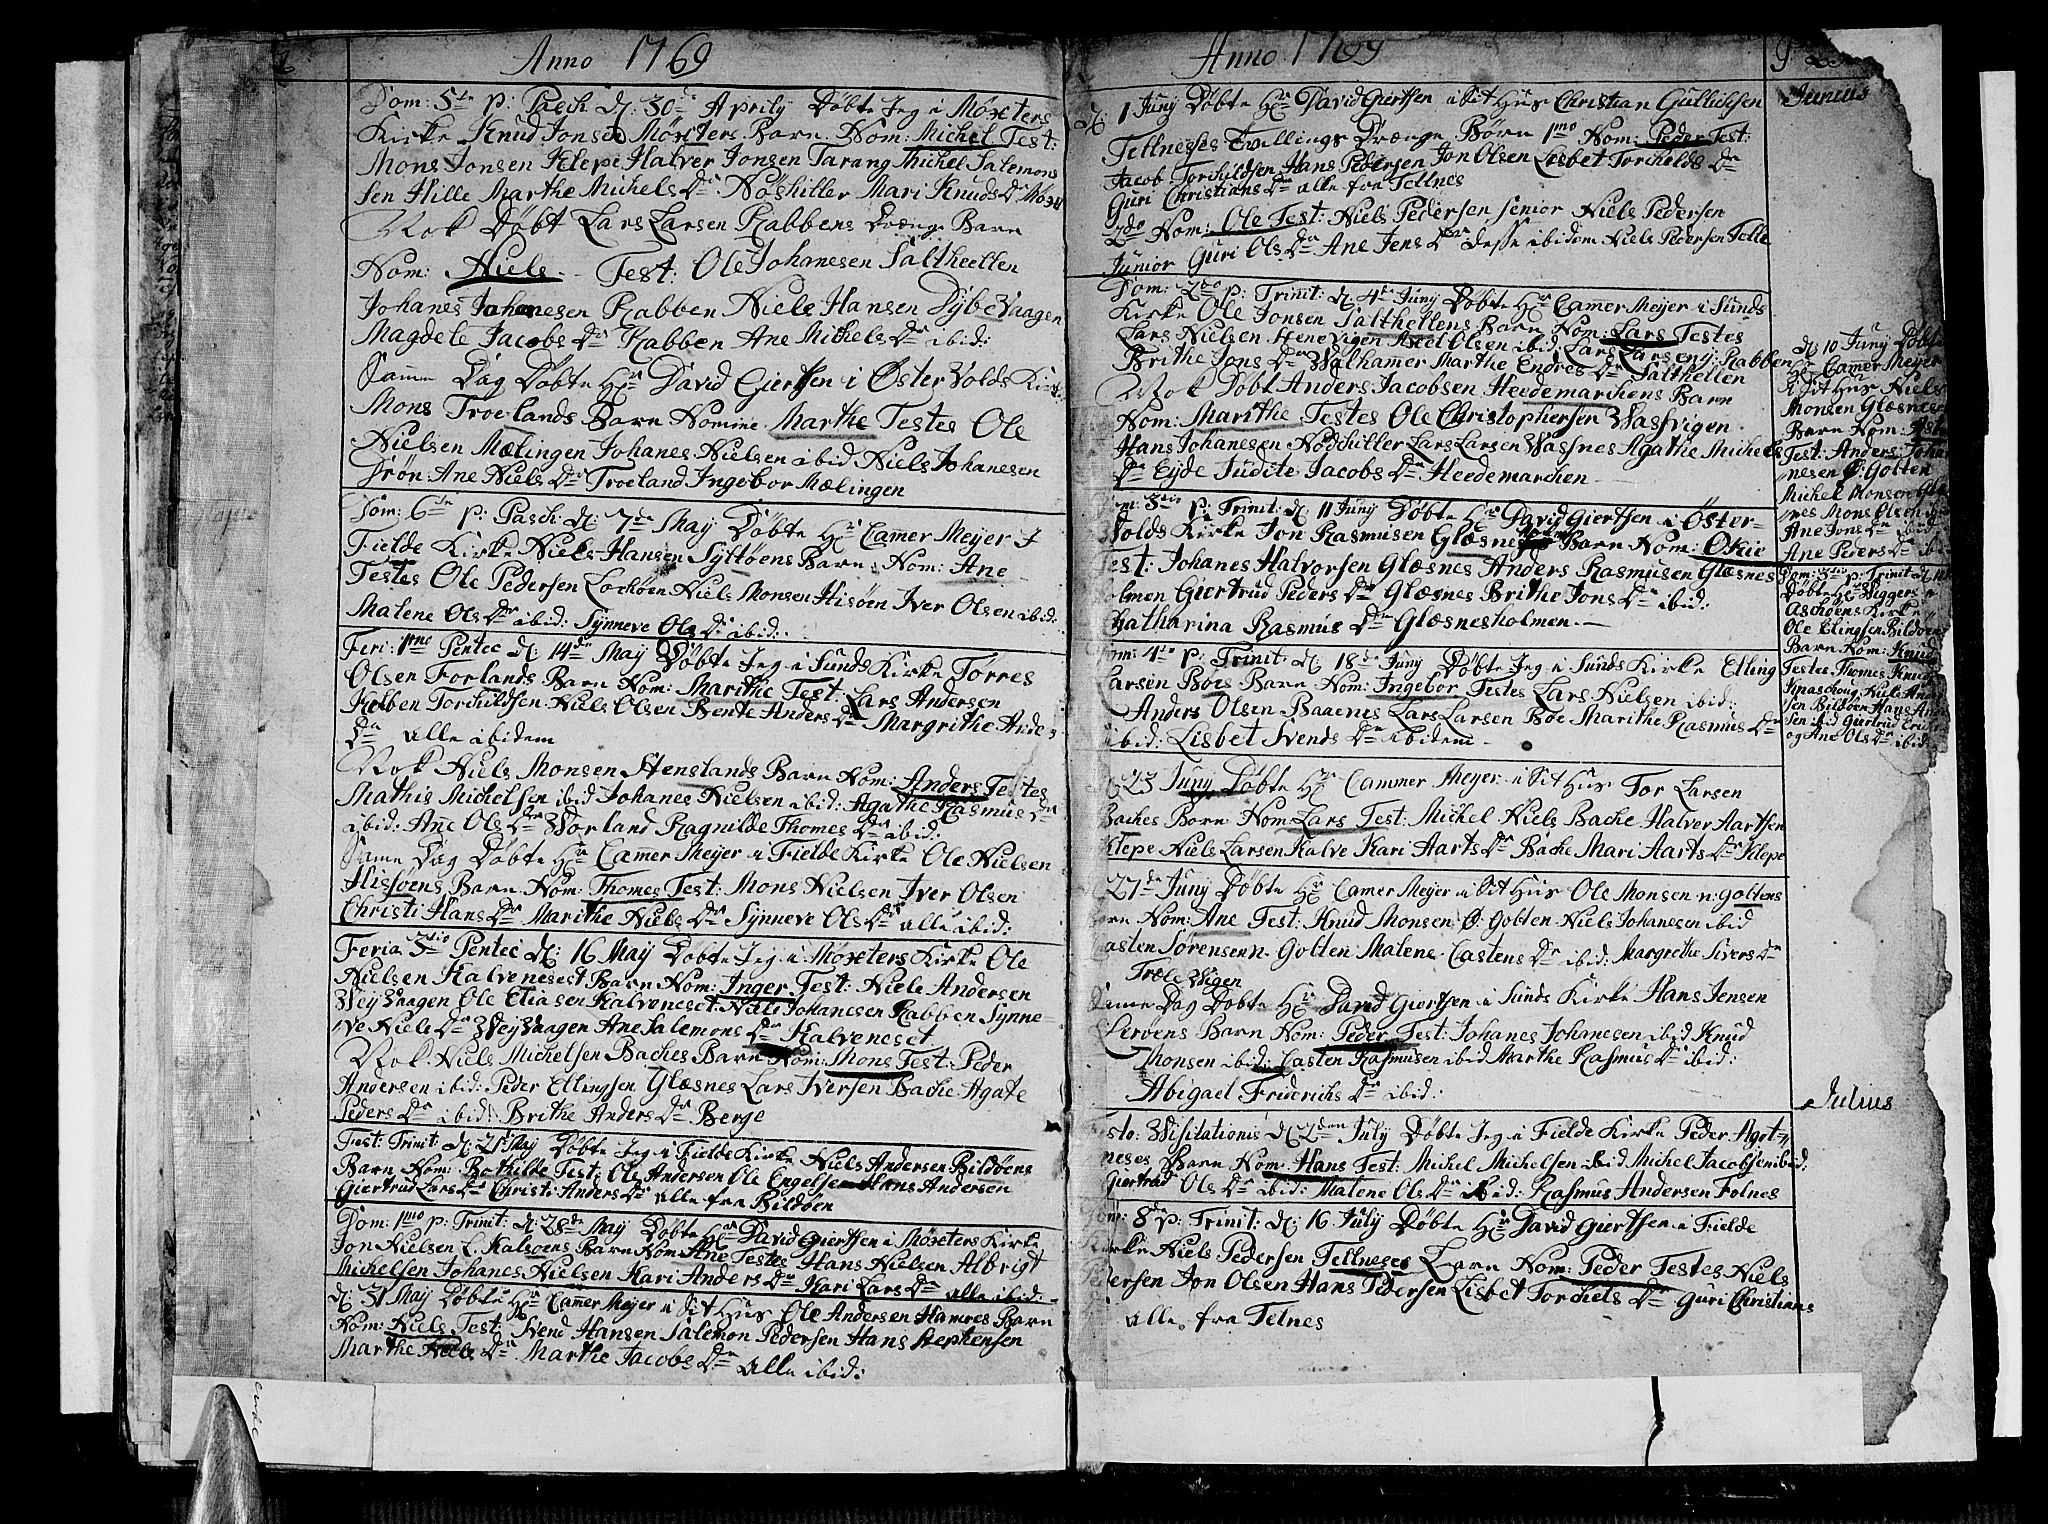 Anno 1769
Dom: 5te p: Pasch d: 30de Aprily Døbte Jeg i Møxters
Kirke Knud Jonsen Møxters Barn Nom: Michel Test:
Mons Jonsen Klepe Halver Jonsen Tarang Michel Salemons
sen Hille Marthe Michels Dr Nøshiller Mari Knuds Dr Møxt
Nok Døbt Lars Larsen Rabbens Drænge Barn
Nom: Niels Test: Ole Johanesen Saltheellen
Johanes Johanesen Rabben Niels Hansen Dybe Vaagen
Magdele Jacobs Dr Rabben Ane Michels Dr ibid:
Samme Dag Døbte Hr David Giertsen i Øster Volds Kirke
Mons Troelands Barn Nomine Marthe Testes Ole
Nielsen Mælingen Johanes Nielsen ibid Niels Johanesen
Trøn Ane Niels Dr Troeland Ingebor Mælingen
Majus
Dom: 6te p: Pasch d: 7de May Døbte Hr Camer Meyer I
Fielde Kirke Niels Hansen Syltøens Barn Nom: Ane
Testes Ole Pedersen Lochøen Niels Monsen Hisøen Iver Olsen ibid:
Malene Ols Dr ibid: Synneve Ols Dr ibid:
Feri: 1mo Pentec d: 14de May Døbte Jeg i Sunds Kirke Torres
Olsen Forlands Barn Nom: Marithe Test: Lars Andersen
Kolben Torchildsen Niels Olsen Bente Anders Dr Margrithe Anders
Dr alle ibidem
Nok Niels Monsen Stenslands Barn Nom: Anders Testes
Mathis Michelsen ibid Johanes Nielsen ibid: Agathe Rasmus Dr
ibid: Ane Ols Dr Vorland Ragnilde Thomes Dr ibid:
Same Dag Døbte Hr Camer Meyer i Fielde Kirke Ole Nielsen
Hissøens Barn Nom: Thomes Test: Mons Nielsen Iver Olsen
Christi Hans Dr Marithe Niels Dr Synneve Ols Dr alle ibid:
Feria 3tio Pentec d: 16 May Døbte Jeg i Møxters Kirke Ole
Nielsen Kalveneset Barn Nom: Inger Test: Niels Andersen
Vey Vaagen Ole Eliasen Kalveneset Niels Johanesen Rabben Synne-
ve Niels Dr Vey Vaagen Ane Salemons Dr Kalveneset
Nok Niels Michelsen Baches Barn Nom: Mons Test: Peder
Andersen ibid: Peder Ellingsen Glæsnes Lars Iversen Bache Agate
Peders Dr ibid: Brithe Anders Dr Berge
Fest: Trinit d: 21 May Døbte Jeg i Fielde Kirke Niels Andersen Bildøens
Barn Nom: Bothilde Test: Ole Andersen Ole Engelsen Hans Andersen
Giertrud Lars Dr Christi Anders Dr alle fra Bildøen
Dom: 1mo p: Trinit: d: 28de May Døbte Hr David Giertsen i Møxters Kirke
Jon Nielsen L. Kalsøens Barn Nom: Ane Testes Hans Nielsen Albrigt
Michelsen Johanes Nielsen Kari Anders Dr Kari Lars Dr alle ibid:
d: 31 May Døbte Hr Camer Meyer i Sit Hus Ole Andersen Hamres Barn
Nom: Niels Test: Svend Hansen Salemon Pedersen Hans Stephensen
Marthe Niels Dr Marthe Jacobs Dr alle ibid:
Anno 1769
Junius
d: 1 Juny Døbte Hr David Giertsen i Sit Hus Christian Gullichsen
Tellneses Tvillings Drænge Børn 1mo Nom: Peder Test:
Jacob Torchildsen Hans Pedersen Jon Olsen Lisbet Torchelds Dr
Guri Christians Dr alle fra Tellnes
2do Nom: Ole Test: Niels Pedersen senior Niels Pedersen
Junior Guri Ols Dr Ane Jens Dr desse ibidem Niels Pedersen Tolle
Dom: 2do p: Trinit: d: 4de Juny Døbte Hr Camer Meyer i Sunds
Kirke Ole Jonsen Salthellens Barn Nom: Lars Testes
Lars Nielsen Stenevigen Axel Olsen ibid: Lars Larsen y: Rabben
Brithe Jons Dr Valhamer Marthe Endres Dr Salthellen
Nok Døbt Anders Jacobsen Heedemarchens Barn
Nom: Marithe Testes Ole Christophersen Vasvigen
Hans Johanesen Nodchiller Lars Larsen Vassnes Agathe Michels
Dr Eyde Judite Jacobs Dr Heedemarchen
Dom: 3tio p: Trinit: d: 11 Juny Døbte Hr David Giertsen i Øster-
Volds Kirke Jon Rasmusen Glæsnes Barn Nom: Okie
Test: Johanes Halvorsen Glæsnes Anders Rasmusen Glæsnes
holmen Giertrud Peders Dr Glæsnes Brithe Jons Dr ibid:
Chatharina Rasmus Dr Glæsnesholmen
Dom: 4to p: Trinit d: 18de Juny Døbte Jeg i Sunds Kirke Elling
Larsen Boes Barn Nom: Ingebor Testes Lars Nielsen ibid:
Anders Olsen Baaenes Lars Larsen Boe Marithe Rasmus Dr
ibid: Lisbet Svends Dr ibidem
d: 23 Juny Døbte Hr Cammer Meyer i Sit Hus Tor Larsen
Baches Barn Nom: Lars Test: Michel Niels Bache Halver Aartsen
Klepe Niels Larsen Kalve Kari Aarts Dr Bache Mari Aarts Dr Klepe
d: 27de Juny Døbte Hr Camer Meyer i Sit Hus Ole Monsen n: Goltens
Barn Nom: Ane Test: Knud Monsen Ø: Golten Niels Johanesen ibid
Casten Sørensen n. Golten Malene Castens Dr ibid: Margrethe Sivers Dr
Træle Vigen
Same Dag Døbte Hr David Giertsen i Sunds Kirke Hans Jensen
Lerøens Barn Nom: Peder Test: Johanes Johanesen ibid Knud
Monsen ibid: Casten Rasmusen ibid Marthe Rasmus Dr ibid:
Abigael Friderichs Dr ibid:
Julius
Festo: Visitationis d: 2den July Døbte Jeg i Fielde Kirke Peder Agot-
neses Barn Nom: Hans Test: Michel Michelsen ibid Michel Jacobsen ibid.
Giertrud Ols Dr ibid: Malene Ols Dr ibid: Rasmus Andersen Folnes
Dom: 8de p: Trinit: d: 16 July Døbte Hr David Giertsen i Fielde
Kirke Niels Pedersen Tellneses Barn Nom: Peder Testes Niels
Pedersen Jon Olsen Hans Pedersen Lisbet Torchels Dr Guri Christians
alle fra Telnes
d: 10 Juny Døbte
Hr Camer Meyer
i Sit Hus Niels
Monsen Glæsnes
Barn Nom:
Test: Anders Joha
nesen Ø: Golten
Michel Monsen Glæs
nes Mons Olsen
Ane Jons Dr ibid
Ane Peders Dr
Dom: 3tio p: Trinit d: 11
Døbte Hr Wiggers i
Aschøens Kirke
Ole Elingsen Bildøens
Barn Nom: Knud
Testes Thomes Knud
Knaschoug Niels And
sen Bildøen Hans And
sen ibid Giertrud
og Ane Ols Dr ibid: